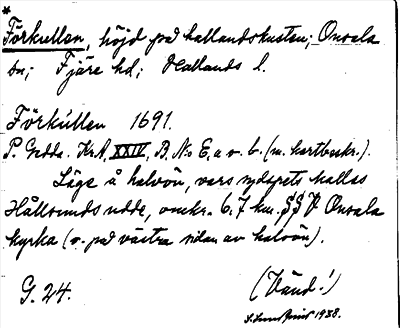 *
Förkullen, höjd på hallandskusten; Onsala
sn; Fjäre hd; Hallands l.
Förkullen 1691.
P. Gedda. KrA, XXIV, B. N:o E, a o. b. (m. kartbeskr.).
Läge å halvön, vars sydspets kallas
Hållsunds udde, omkr. 6.7 km. SSV Onsala
kyrka (o. på västra sidan av halvön).
G. 24.
(Vänd!)
1938.